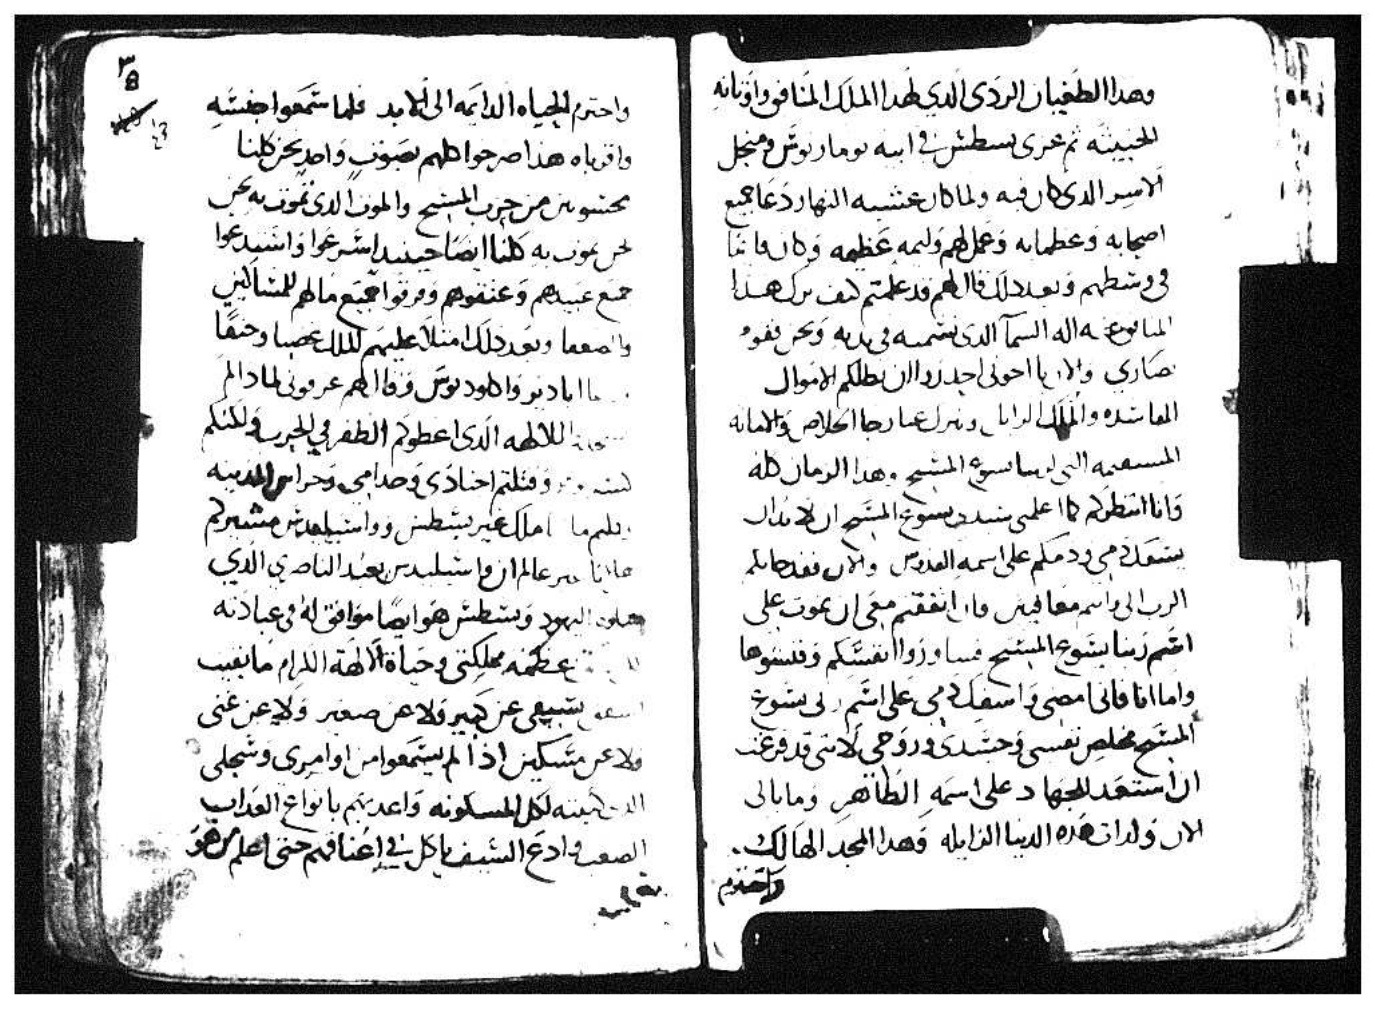 وهذا الطغيان الردى الذي لهذا الملك المنافق واوثانه
الخبيثه ثم عزى بسطس في ابنه نوماريوس ومن جل
الاسر الذى كان فيه ولما كان عشيه النهار دعا جميع
اصحابه وعظمايه وعمل لهم وليمه عظيمه وكان قايما
في وسطهم وبعد ذلك قال لهم قد علمتم كيف ترك هذا
المنافق عنه اله السما الذى نسمته في يديه ونحن نقوم
نصارى والان يا اخوتى احذروا ان تطلكم الاموال
الفاسده والملك الزايل
المستقيمه التى لربنا يسوع المسيح وهذا الزمان كله
وانا انتظركم كما اعلمنى سيدى يسوع المسيح ان لا بد ان
يسفك دمى ودمكم على اسمه القدوس والان فقد جابكم
الرب الى واسم معافيين فان اتفقتم معى ان نموت على
اسم ربنا يسوع المسيح فشاوروا انفسكم وفتشوها
واما انا فانى امضى واسفك دمى على اسم ربى يسوع
المسيح مخلص نفسى وجسدى وروحى لاننى قد فرغت
ان استعد للجهاد على اسمه الطاهر وما بالى
الان ولذات هذه الدنيا الزايله وهذا المجد الهالك
واحترم
٣
8
43
واحترم الحياه الدايمه الى الابد فلما سمعوا جنسه
واقرباه هذا صرخوا كلهم بصوت واحد نحن كلنا
محتسوبين من حزب المسيح والموت الذى تموت به نحن
نحن نموت به كلنا ايضا حينيد اسرعوا واستدعوا
جميع عبيدهم وعتقوهم وفرقوا جميع مالهم للمساكين
والضعفا وبعد ذلك امتلا عليهم الملك غضبا وحنقا
اباديو واكلوديوس وقال لهم عرفونى لماذا لم
اللالهه الذى اعطوكم الظفر في الحرب ولكنكم
وقتلتم اجنادى وخدامى وحراس المدينه
املك غير بسطس وواسيليدس مشيركم
عالم ان واسيليدس يعبد الناصري الذي
اليهود وبسطس هو ايضا موافق له في عبادته
عظمه مملكتى وحياة الالهة الكرام ما بقيت
سيفى عن كبير ولا عن صغير ولا عن غنى
ولا عن مسكين اذا لم يسمعوا من اوامرى وسجلى
الذى كتبته لكل المسكونه واعذبهم بانواع العذاب
الصعب وادع السيف ياكل في اعناقهم حتى اعلم من هو